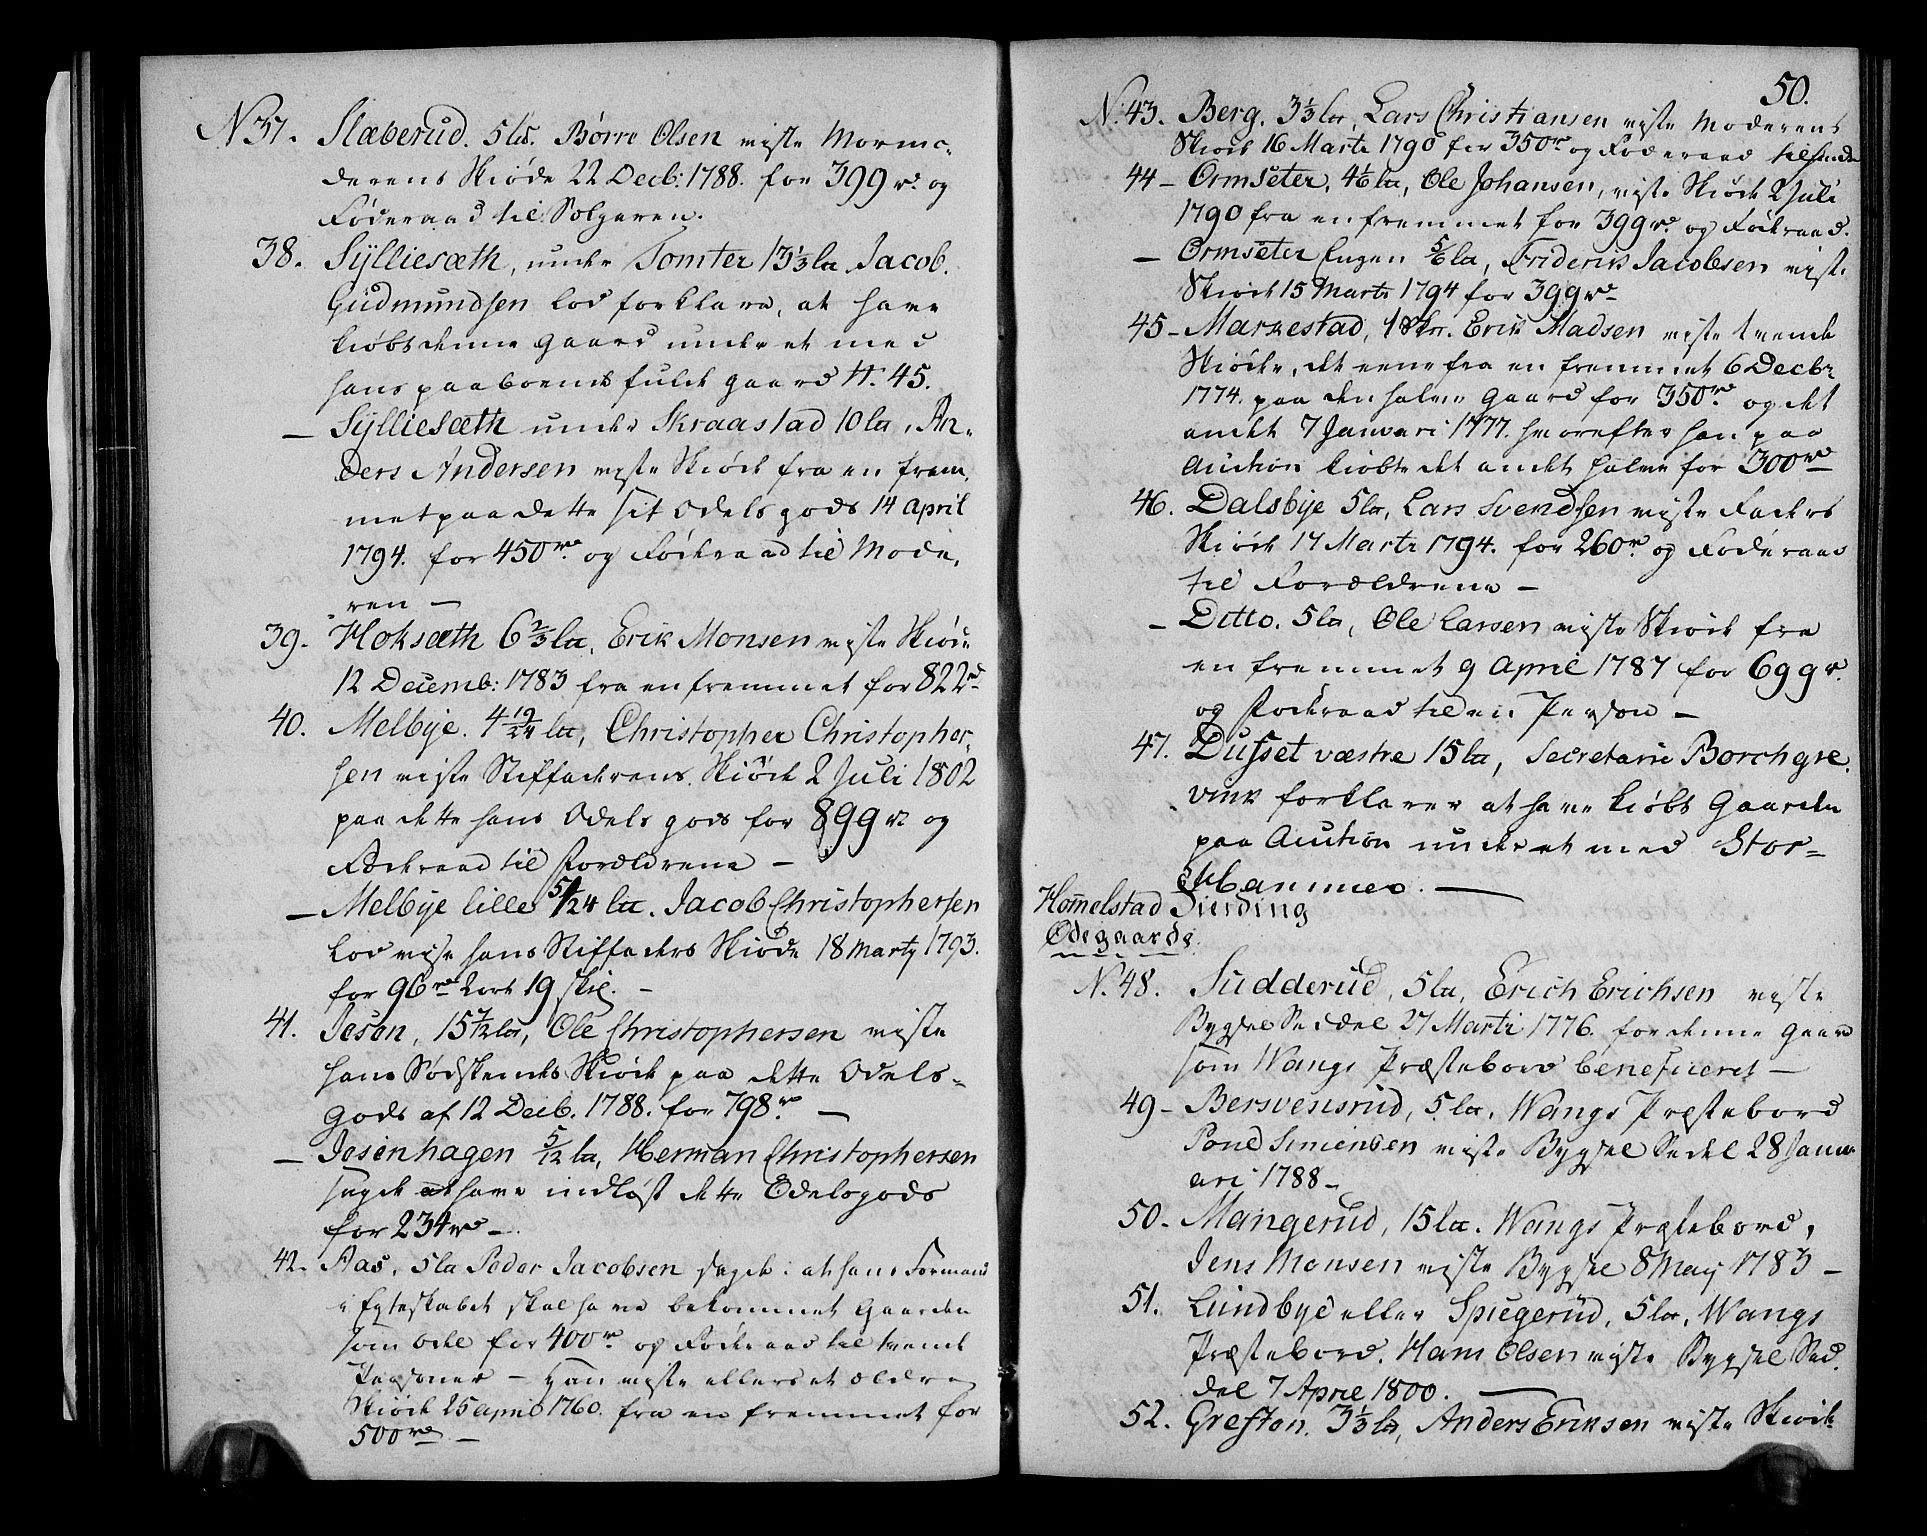 N 37. Slæberud. 5 lis. Børre Olsen viste Mormo-
derens Skiøde 22 Decb: 1788. for 399 rd og
Føderaad til Solgeren.
38. Sÿlliesæth, under Tomter 13⅓ la Jacob
Gudmundsen lod forklare, at have
kiøbt denne Gaard under et med
hans paaboende fulde gaard N. 45.
— Sÿlliesæth under Skraastad 10 la, An-
ders Andersen viste Skiøde fra en frem-
met paa dette sit Odelsgods 14 april
1794. for 450 rd og Føderaad til Mode-
ren —
39. Hoksæth 6⅔ la, Erik Monsen viste Skiøde
12 Decemb: 1783 fra en fremmet for 822 rd
40. Melbye. 4 19/24 la, Christopher Christopher-
sen viste Stiffaderens Skiøde 2 Juli 1802
paa dette hans Odelsgods for 899 rd og
Føderaad til Forældrene —
— Melbye lille 5/24 la. Jacob Christophersen
lod vise hans Stiffaders Skiøde 18 Marty 1793.
for 96 rd 19 skil. —
41. Jesen, 15 5/12 la, Ole Christophersen viste
hans Sødskendes Skiøde paa dette Odels-
gods af 12 Decb. 1788. for 798 rd —
— Jesenhagen 5/12 la, Herman Christophersen
sagde at have indløst dette Odelsgods
for 234 rd —
42. Aas, 5 la Peder Jacobsen sagde: at hans Formand
i Egteskabet skal have bekommet Gaarden
som Odel for 400 rd og Føderaad til tvende
Personer — Han viste ellers et ældre
Skiøde 25 april 1760. fra en fremmet for
500 rd —
50.
N. 43. Berg. 3⅓ la, Lars Christiansen viste Moderens
Skiøde 16 Marti 1790 for 350 rd og Føderaad til hende
44 — Ormseter, 4⅙ la, Ole Johansen, viste Skiøde 2 Juli
1790 fra en fremmet for 399 rd og Føderaad.
— Ormseter Engen ⅚ la, Friderik Jacobsen viste
Skiøde 15 Marti 1794 for 399 rd
45 — Markestad, 1 Erik Madsen viste tvende
Skiøde, det eene fra en fremmet 6 Decbr
1774. paa den halve Gaard for 350 rd og det
andet 7 Januari 1777. hvorefter han paa
Auction kiøbte det andet halve for 300 rd
46. Dalsbye 5 la, Lars Svendsen viste Faders
Skiøde 17 Marti 1794. for 260 rd og Føderaad
til Forældrene —
— Ditto. 5 la, Ole Larsen viste Skiøde fra
en fremmet 9 April 1787 for 699 rd
og Føderaad til en Person —
47. Dusset væstre 15 la, Secretaire Borchgre-
vink forklarer at have kiøbt Gaarden
paa Auction under et med Stor-
Hammer. —
Hommelstad Fierding
Ødegaarde.
N. 48. Sudderud, 5 la, Erich Erichsen viste
Bygsel Seddel 27 Marti 1776. for denne Gaard
som Wangs Præstebord beneficeret —
49 — Bersvensrud, 5 la. Wangs Præstebord
Poul Simensen viste Bygsel Sedel 28 Janu-
ari 1788 —
50. Mangerud, 15 la. Wangs Præstebord,
Jens Monsen viste Bygsel 8 May 1783 —
51. Lundbye eller Spiegerud, 5 la, Wangs
Præstebord. Hans Olsen viste Bygsel Sed-
del 7 April 1800. —
52. Grefton. 3⅓ la, Anders Eriksen viste Skiøde